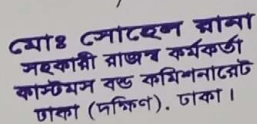 মোঃ সোহেল রানা
সহকারী রাজস্ব কর্মকর্তা
কাস্টমস বন্ড কমিশনারেট
ঢাকা (দক্ষিণ), ঢাকা।